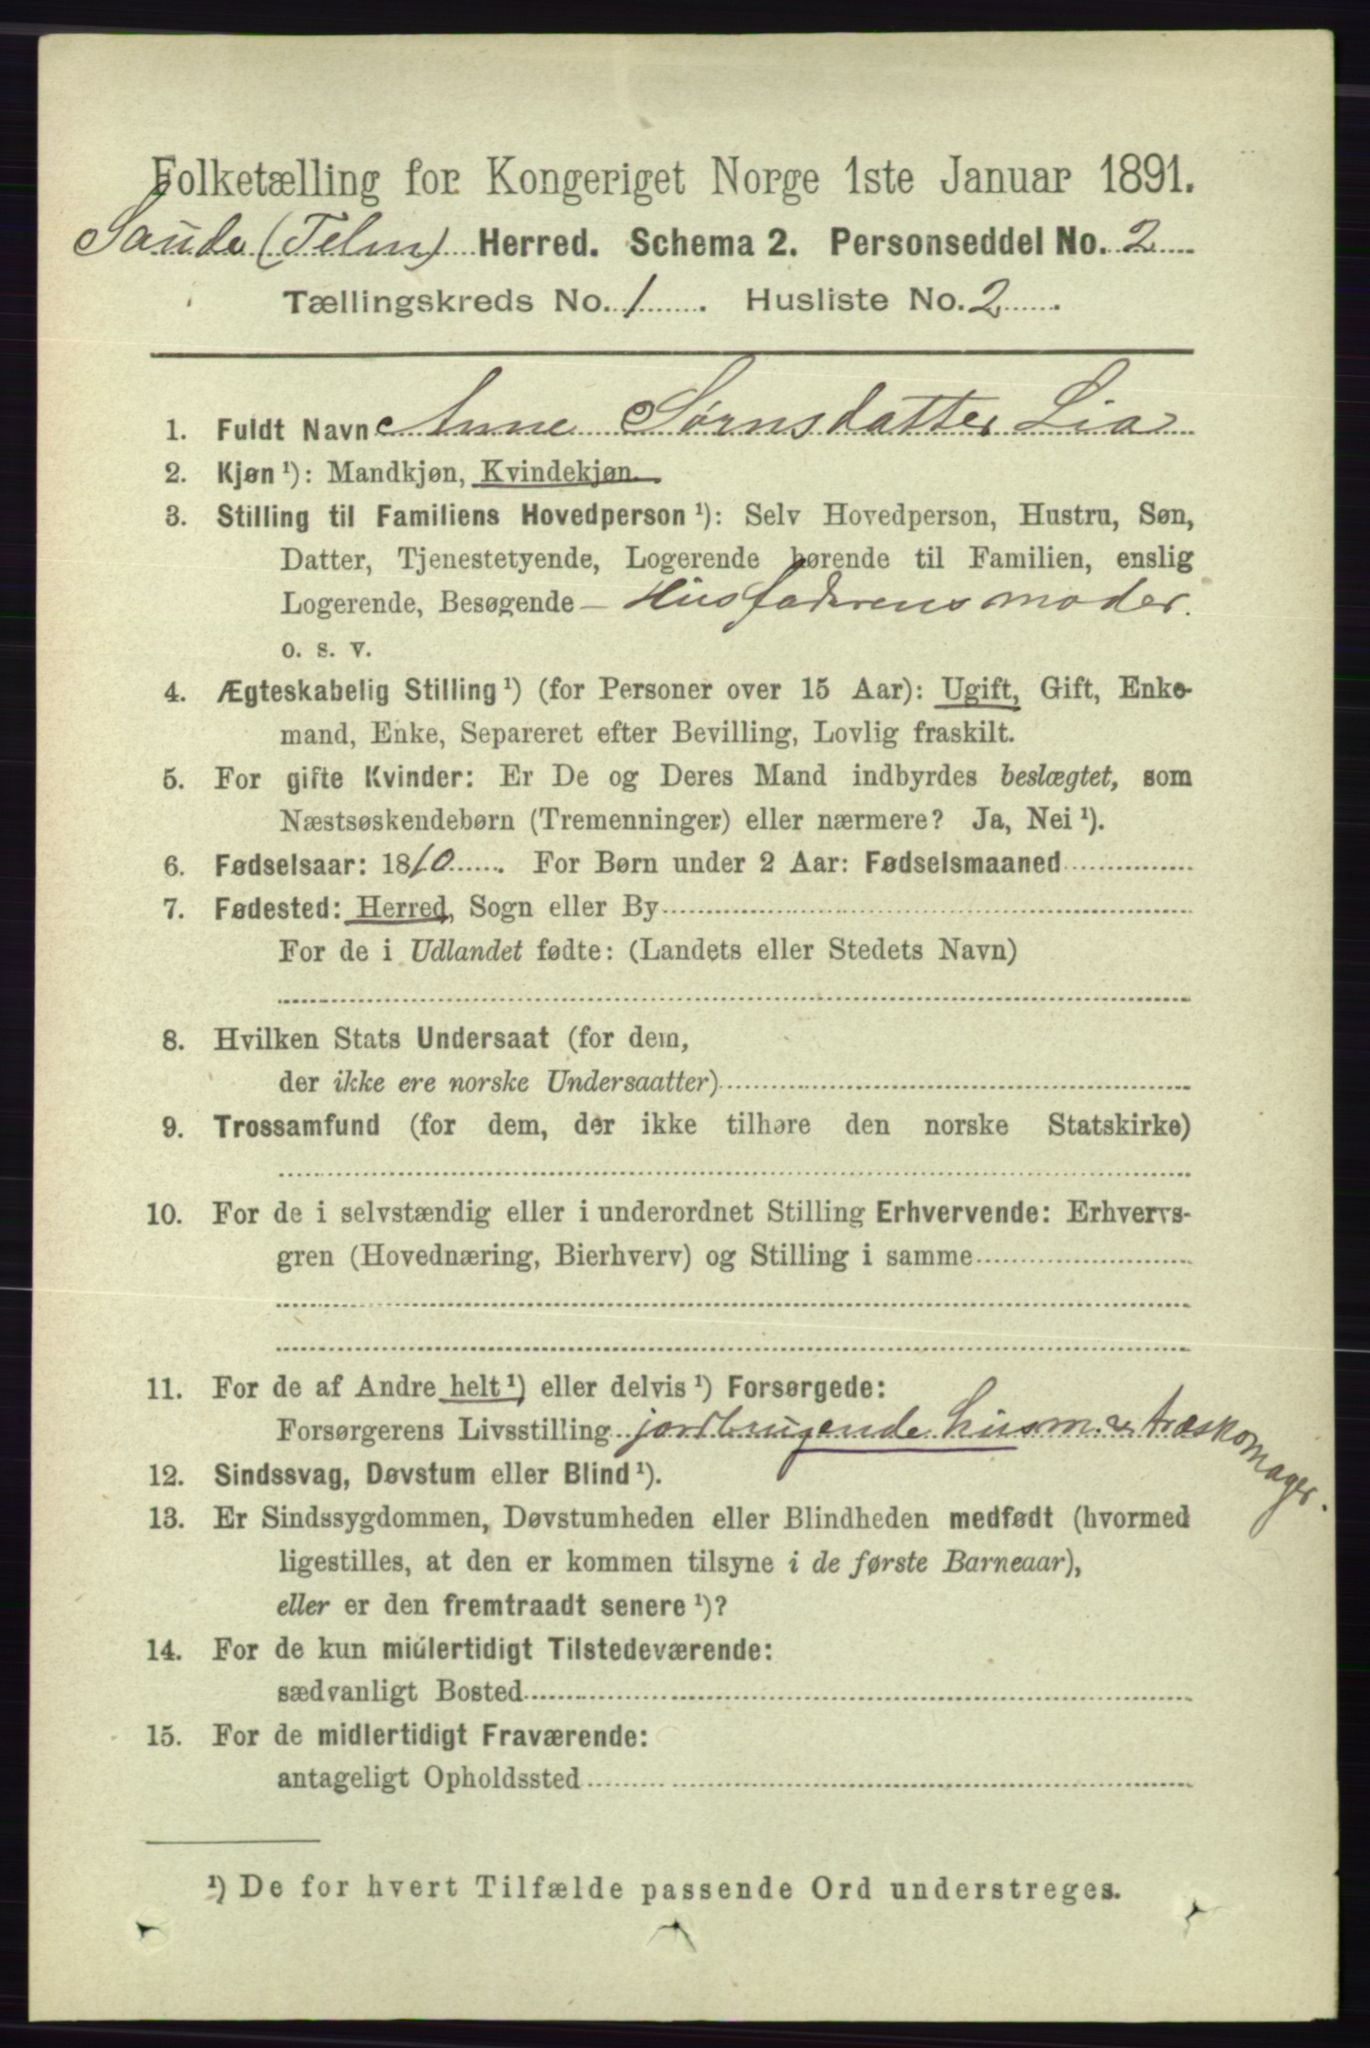 Folketælling for Kongeriget Norge 1ste Januar 1891.
Saude (Telm) Herred. Schema 2. Personseddel No. 2
Tællingskreds No. 1. Husliste No. 2.
1. Fuldt Navn Anne Sørnsdatter Lia
2. Kjøn ¹): Mandkjøn, Kvindekjøn.
3. Stilling til Familiens Hovedperson ¹): Selv Hovedperson, Hustru, Søn,
Datter, Tjenestetyende, Logerende hørende til Familien, enslig
Logerende, Besøgende – Husfaderens moder.
o. s. v.
4. Ægteskabelig Stilling ¹) (for Personer over 15 Aar): Ugift, Gift, Enke-
mand, Enke, Separeret efter Bevilling, Lovlig fraskilt.
5. For gifte Kvinder: Er De og Deres Mand indbyrdes beslægtet, som
Næstsøskendebørn (Tremenninger) eller nærmere? Ja, Nei ¹).
6. Fødselsaar: 1810. For Børn under 2 Aar: Fødselsmaaned
7. Fødested: Herred, Sogn eller By
For de i Udlandet fødte: (Landets eller Stedets Navn)
8. Hvilken Stats Undersaat (for dem,
der ikke ere norske Undersaatter)
9. Trossamfund (for dem, der ikke tilhøre den norske Statskirke)
10. For de i selvstændig eller i underordnet Stilling Erhvervende: Erhvervs-
gren (Hovednæring, Bierhverv) og Stilling i samme
11. For de af Andre helt ¹) eller delvis ¹) Forsørgede:
Forsørgerens Livsstilling jordbrugende husm. & træskomager.
12. Sindssvag, Døvstum eller Blind ¹).
13. Er Sindssygdommen, Døvstumheden eller Blindheden medfødt (hvormed
ligestilles, at den er kommen tilsyne i de første Barneaar),
eller er den fremtraadt senere ¹)?
14. For de kun midlertidigt Tilstedeværende:
sædvanligt Bosted
15. For de midlertidigt Fraværende:
antageligt Opholdssted
¹) De for hvert Tilfælde passende Ord understreges.